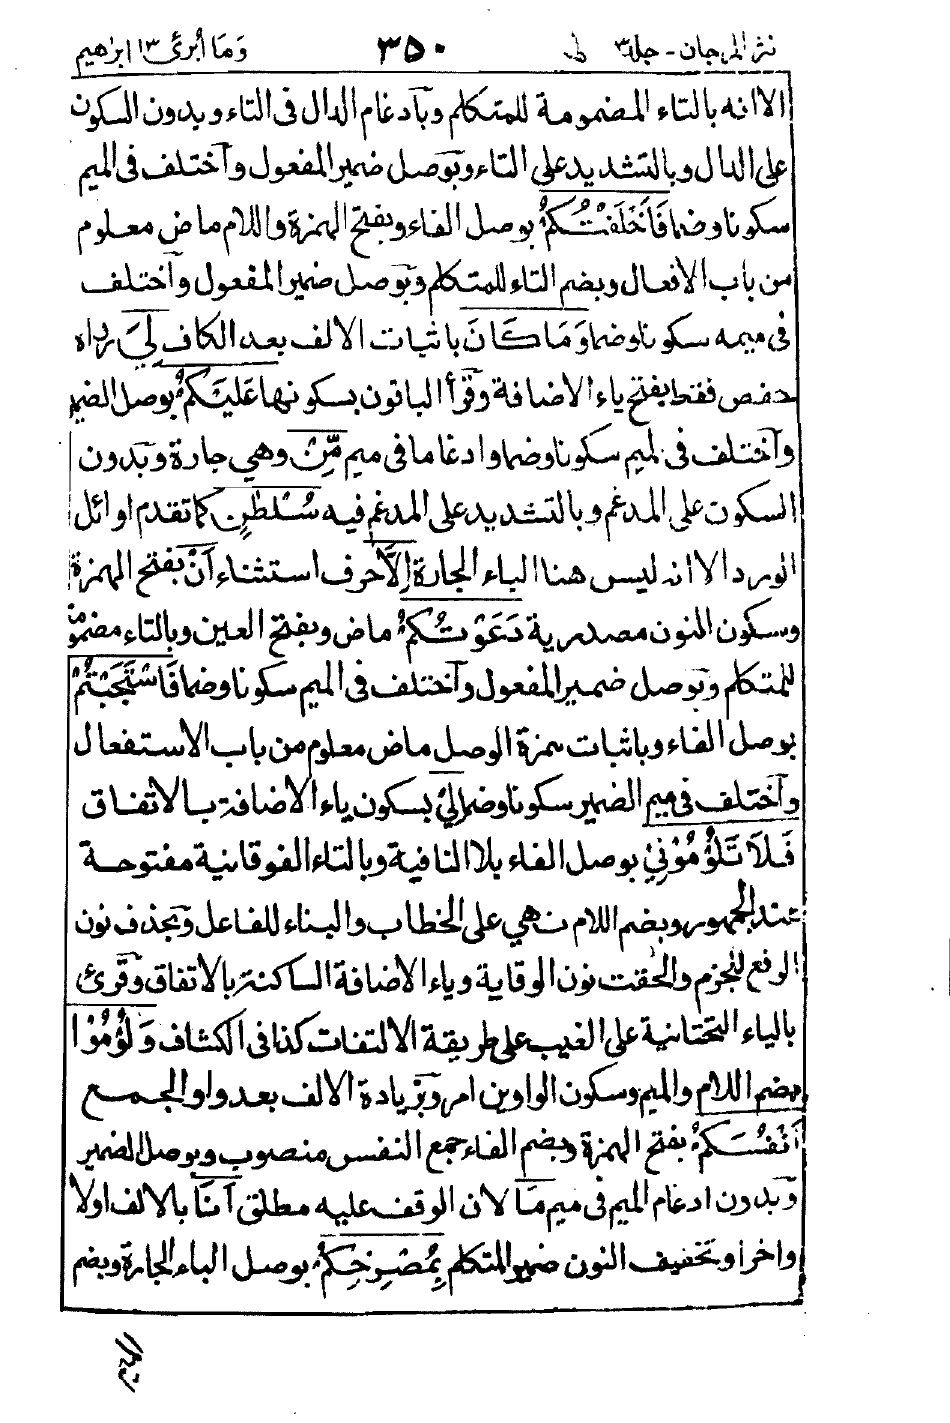 نثر المرجان - جلد ٣ ٣٥٠ وَمَا أُبَرِّئُ ١٣ ابراهيم
الا انه بالتاء المضمومة للمتكلم وبآدغام الدال فى التاء وبدون السكون
على الدال وبالتشديد على التاء وبوصل ضمير المفعول وآختلف فى الميم
سكونا وضما فَاَخْلَفْتُكُمْ بوصل الفاء وبفتح الهمزة واللام ماض معلوم
من باب الافعال وبضم التاء للمتكلم وبوصل ضمير المفعول وآختلف
فى ميمه سكونا وضما وَمَا كَانَ باثبات الالف بعد الكاف لِيَ رواه
حفص فقط بفتح ياء الاضافة وقرأ الباقون بسكونها عَلَيْكُمْ بوصل الضمير
وآختلف فى الميم سكونا وضما وادغاما فى ميم مِّنْ وهي جارة وبدون
السكون على المدغم وبالتشديد على المدغم فيه سُلْطٰنٍ كما تقدم اوائل
الورد الا انه ليس هنا الباء الجارة اِلَّا حرف استثناء اَنْ بفتح الهمزة
وسكون النون مصدرية دَعَوْتُكُمْ ماض وبفتح العين وبالتاء مضمومة
للمتكلم وبوصل ضمير المفعول وآختلف فى الميم سكونا وضما فَاسْتَجَبْتُمْ
بوصل الفاء وباثبات همزة الوصل ماض معلوم من باب الاستفعال
وآختلف فى ميم الضمير سكونا وضما لِيْ بسكون ياء الاضافة بالاتفاق
فَلَا تَلُوْمُوْنِيْ بوصل الفاء بلا النافية وبالتاء الفوقانية مفتوحة
عند الجمهور وبضم اللام نهي على الخطاب والبناء للفاعل وبحذف نون
الرفع للجزم والحقت نون الوقاية وياء الاضافة الساكنة بالاتفاق وقرئ
بالياء التحتانية على الغيب على طريقة الالتفات كذا فى الكشاف وَلُوْمُوْا
بضم اللام والميم وسكون الواوين امر وبزيادة الالف بعد واو الجمع
اَنْفُسَكُمْ بفتح الهمزة وبضم الفاء جمع النفس منصوب وبوصل الضمير
وبدون ادغام الميم فى ميم مَا لان الوقف عليه مطلق اَنَا بالالف اولا
واخرا وتخفيف النون ضمير المتكلم بِمُصْرِخِكُمْ بوصل الباء الجارة وبضم